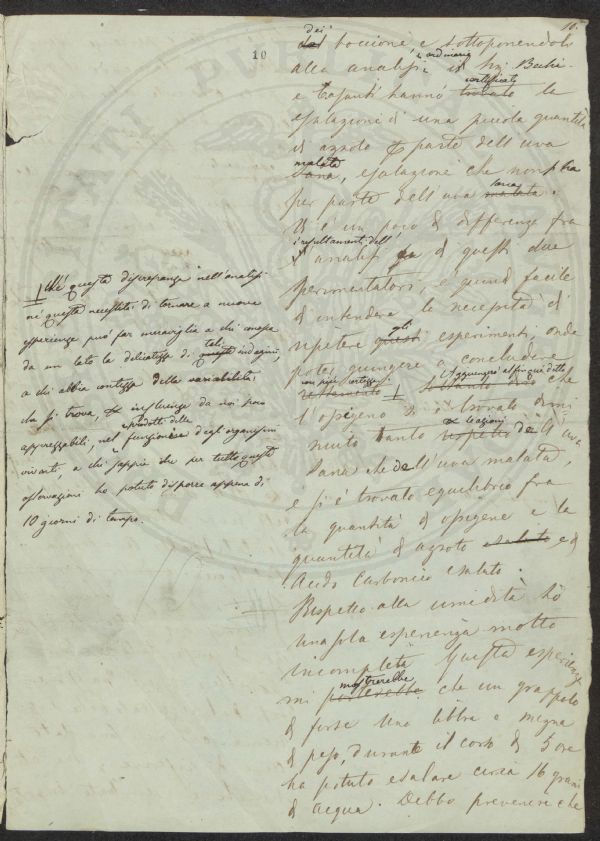 10.
10
dei
del boccione, e sottoponendolo
e ordinaria
alla analisi il Sig. Bechi
certificato
e Tassinti hanno trovato la
esalazione d'una piccola quantità
di azoto parte dell'uva
malata
sana, esalazione che non
per parte dell'uva malata.
V'è un poco di differenza fra
i resultamenti dell'
analisi fra di questi due
sperimentatori, e quindi facile
di intendere la necessità di
gli
repetere questi esperimenti onde
poter giungere a concludere
con più certezza
soltanto che
l'ossigeno si è trovato dimi
nuito tanto rispetto dell'uva
sana che dell'uva malata,
e si è trovato equilibrio fra
la quantità di ossigene e la
quantità di azoto esalato e di
Acido Carbonico esalato.
Rispetto alla umidità ho
una sola esperienza molto
incompleta Questa esperienza
mostrerebbe
mi porterebbe che un grappolo
di forse una libbra e mezza
di peso, durante il corso di 5 ore
ha potuto esalare circa 16 grani
di acqua. Debbo prevenire che
Nè questa discrepanza nell'analisi
nè questa necessità di tornare a nuove
esperienze può far maraviglia a chi conosce
tali
da un lato la delicatezza di queste indagini,
a chi abbia contezza della variabilità
che si trova, influenze da noi poco
prodotti delle
apprezzabili, nel funzioni degli organismi
viventi, a chi sappia che per tutte queste
osservazioni ho potuto disporre appena di
10 giorni di tempo.